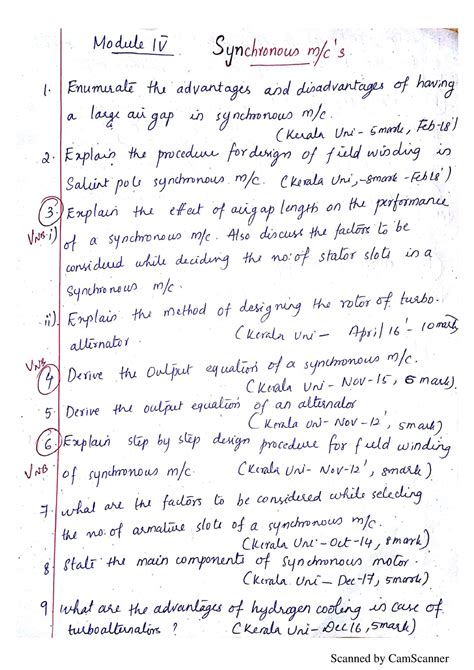 Module IV
Synchronous m/c's
1. Enumerate the advantages and disadvantages of having
a large air gap in synchronous m/c.
(Kerala Uni - 5mark, Feb-18')
2. Explain the procedure for design of field winding in
Salient pole synchronous m/c. (Kerala Uni, -8mark - Feb18')
3. Explain the effect of airgap length on the performance
VNB i) of a synchronous m/c. Also discuss the factors to be
considered while deciding the no: of stator slots in a
Synchronous m/c.
ii). Explain the method of designing the rotor of turbo-
alternator. (Kerala Uni - April 16' - 10mark)
VNB
4 Derive the Output equation of a synchronous m/c.
(Kerala Uni - Nov-15, 5 mark)
5. Derive the output equation of an alternator
(Kerala Uni - Nov-12', 5mark)
6. Explain step by step design procedure for field winding
VNB of synchronous m/c. (Kerala Uni - Nov-12', 8mark)
7. what are the factors to be considered while selecting
the no: of armature slots of a synchronous m/c.
(Kerala Uni - Oct-14, 8mark)
8. State the main components of synchronous motor.
(Kerala Uni - Dec-17, 5mark)
9. what are the advantages of hydrogen cooling in case of
turboalternators ? (Kerala Uni - Dec16, 5mark)
Scanned by CamScanner